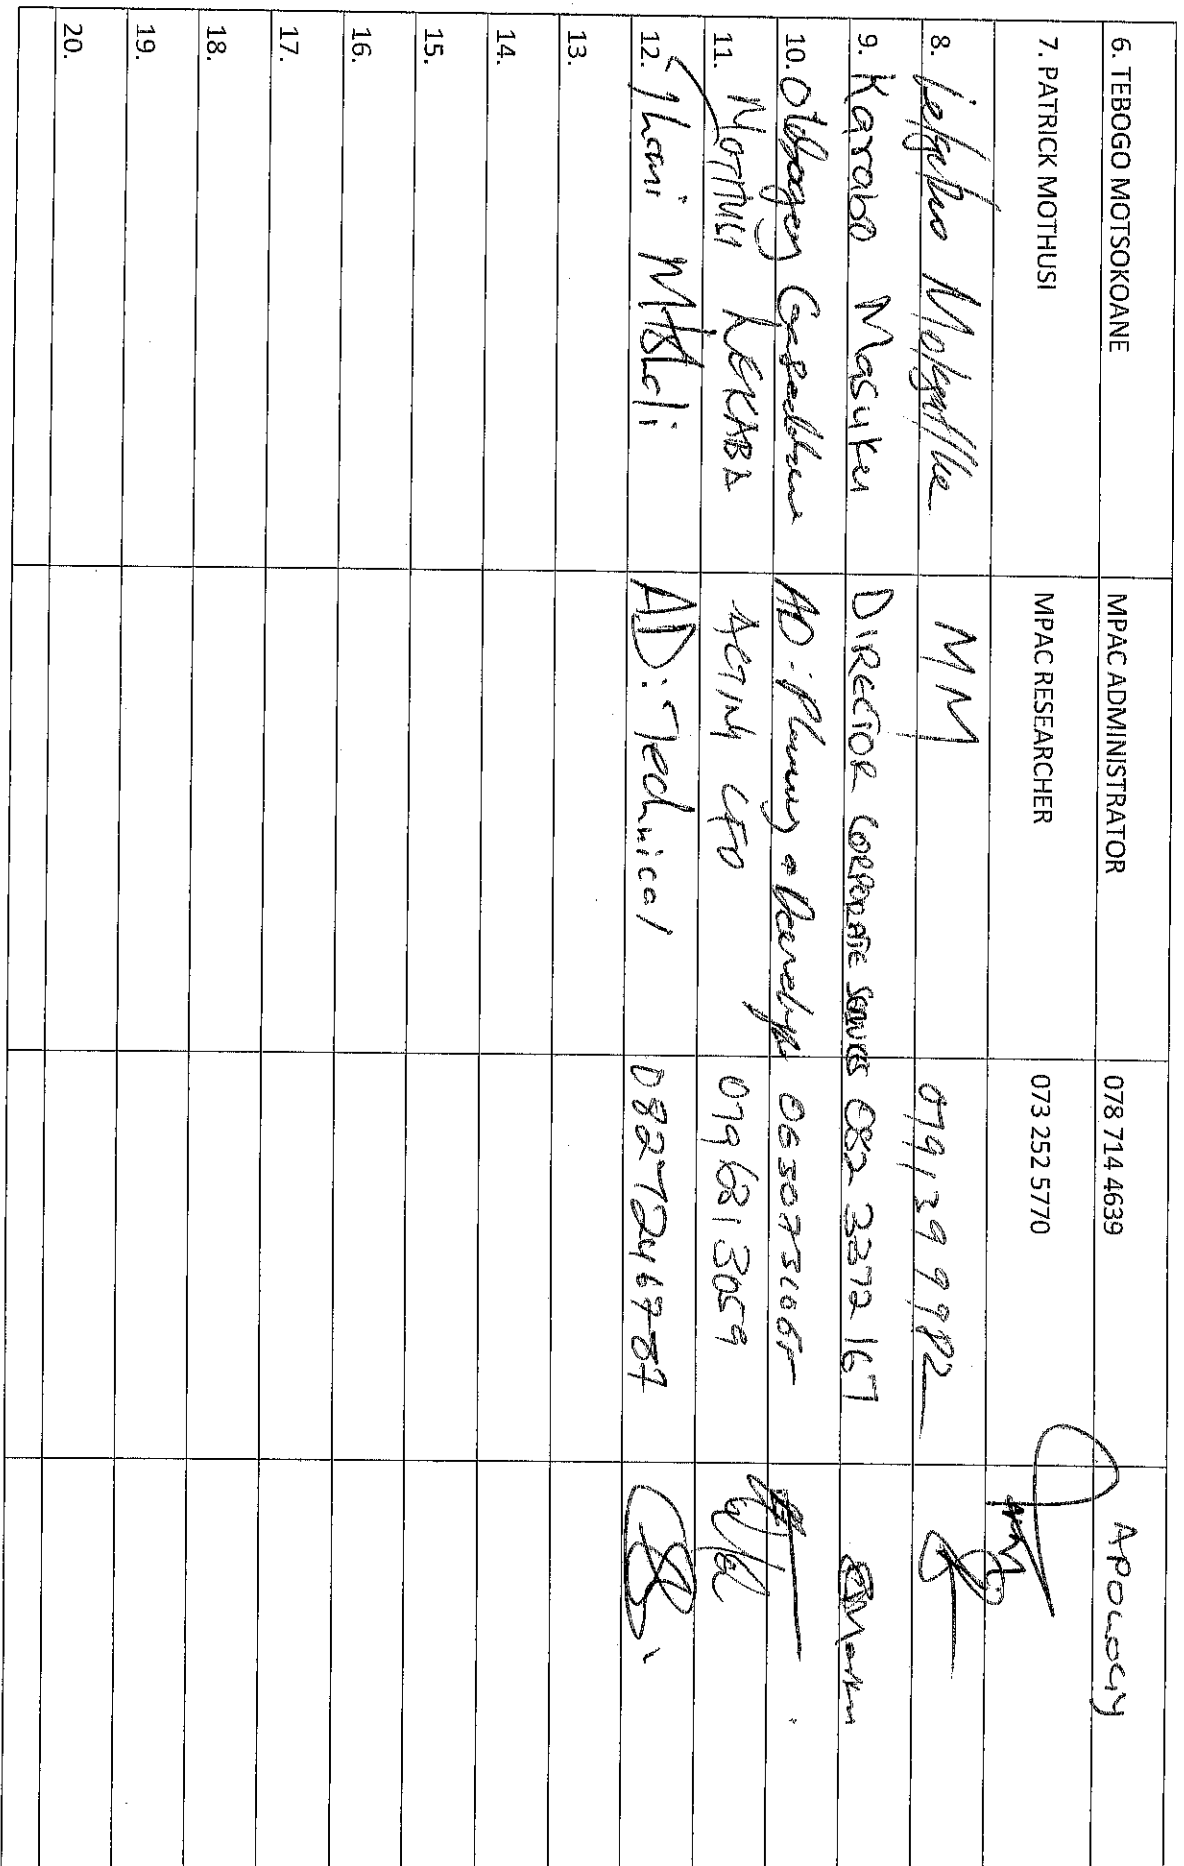 6. TEBOGO MOTSOKOANE MPAC ADMINISTRATOR 078 714 4639 APOLOGY
7. PATRICK MOTHUSI MPAC RESEARCHER 073 252 5770
8. MM 0791399982
9. Karabo Masuku DIRECTOR CORPORATE SERVICES 082 3372 167
10. AD: Planning
11. MOTHUSI LEKABA ACTING CFO 0796813059
12. Thami Mtshali AD: Technical 0827246787
13.
14.
15.
16.
17.
18.
19.
20.